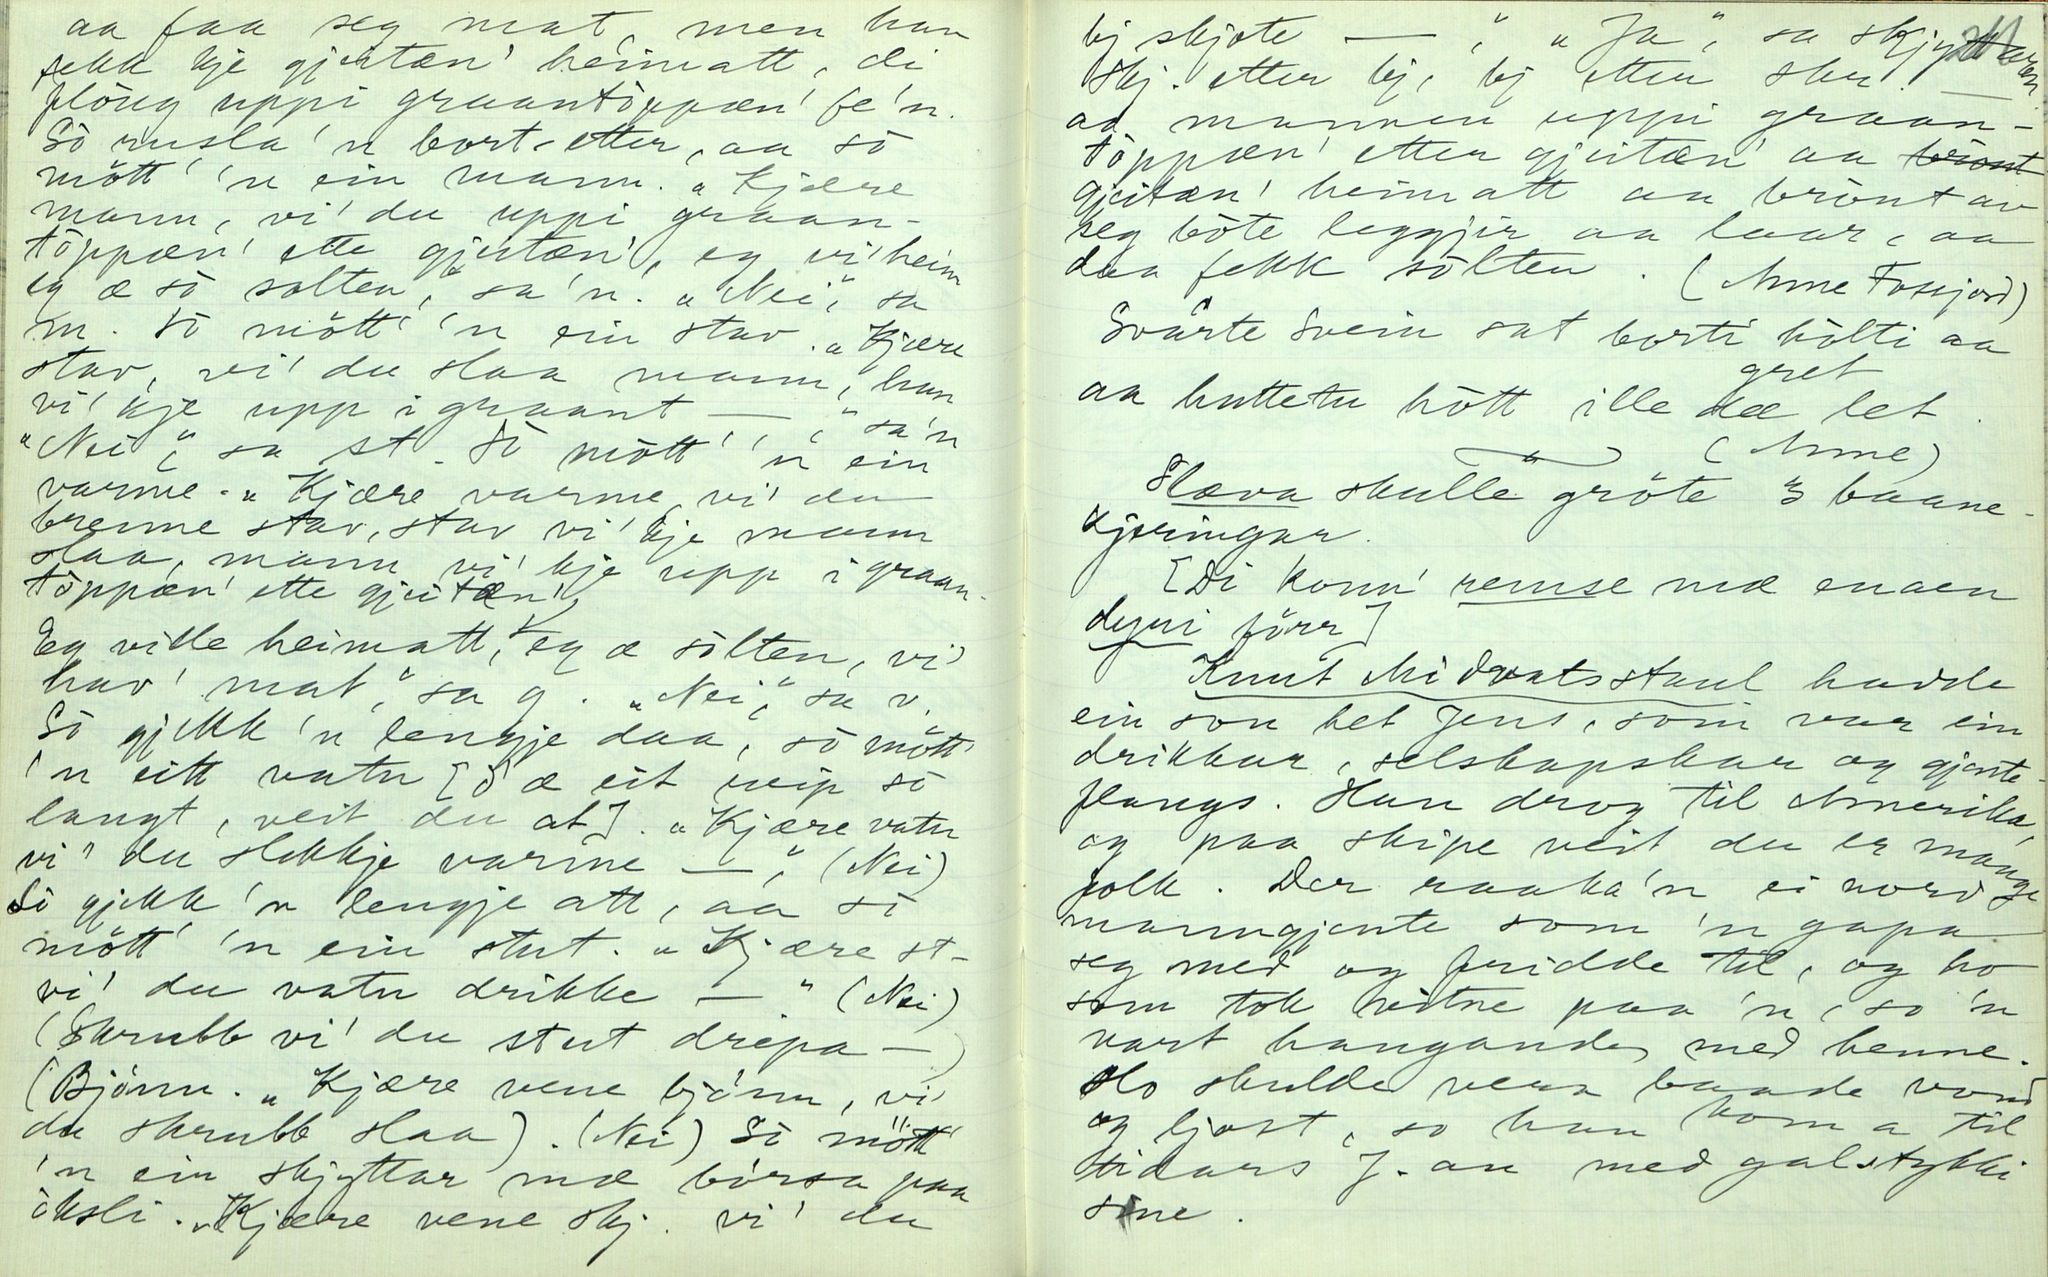 aa faa seg mat, men han
fekk kje gjeitæn' heimatt, di
flöug uppi graantöppæn' fe'n.
Sò rusla 'n bort-etter, aa sò
mött' 'n ein mann. „Kjære
mann, vi' du uppi graan-
töppæn' ette gjeitæn', eg vi' heim
eg æ sò solten," sa 'n. „Nei", sa
m. Sò mött' 'n ein stav. „Kjære
stav, vi' du slaa mann, han
vi' kje upp i graant — ," sa 'n
„Nei," sa st. Sò mött' 'n ein
varme. „Kjære varme, vi' du
brenne stav, stav vi' kje mann
slaa, mann vi' kje upp i graan-
töppæn' ette gjeitæn'
Eg ville heimatt, eg æ sölten, vi'
hav' mat," sa g. „Nei," sa v.
Sò gjekk 'n lengje daa, sò mött'
'n eitt vatn [d' æ eit svip sò
langt, veit du at]. „Kjære vatn
vi' du slekkje varme — ," (Nei)
Sò gjekk 'n lengje att, aa sò
mött' 'n ein stut. „Kjære st-
vi' du vatn drikke — " (Nei)
(Skrubb vi' du stut drepa — )
(Björnn. „Kjære vene björnn, vi'
du skrubb slaa). (Nei) Sò mött'
'n ein skjyttar mæ börsa paa
öksli. „Kjære vene skj. vi' du
bj skjote — ," „Ja", sa skjyttaren.
Skj. etter bj, bj etter skr. —
aa mannen uppi graan-
töppæn' etter gjeitæn' aa bröut
gjeitæn' heimatt aa bröut av
seg böte leggjir aa laar, aa
daa fekk sölten. (Anne Fosejord)
Svarte Svein sat borti hölti aa
gret
aa huttetu hött ille dæ let.
(Anne)
Slæva skulle gröte 3 baane-
kjeringar.
[Di konn' remse mæ enaen
dyri förr]
Knut Midvatsstaul hadde
ein son het Jens, som var ein
drikkar, selskapskar og gjente-
flangs. Han drog til Amerika,
og paa skipe veit du er mange
folk. Der raaka 'n ei nord
manngjente som 'n gapa
seg med og fridde til, og ho
som tok vitne paa 'n, so 'n
vart hangande med henne.
Ho skulde vera baade vond
og ljost, so han kom a til
tidars J. an med galstykki
sine.